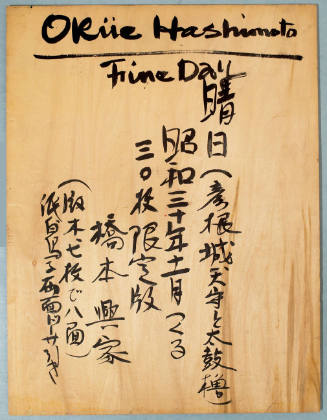 Okiie Hashimoto
Fine Day
晴日(彦根城天守と太鼓櫓)
昭和三十年十一月つくる
三〇枚限定版
橋本興家
(版木七枚で八面)
紙白鳥子両面ドーサ引き